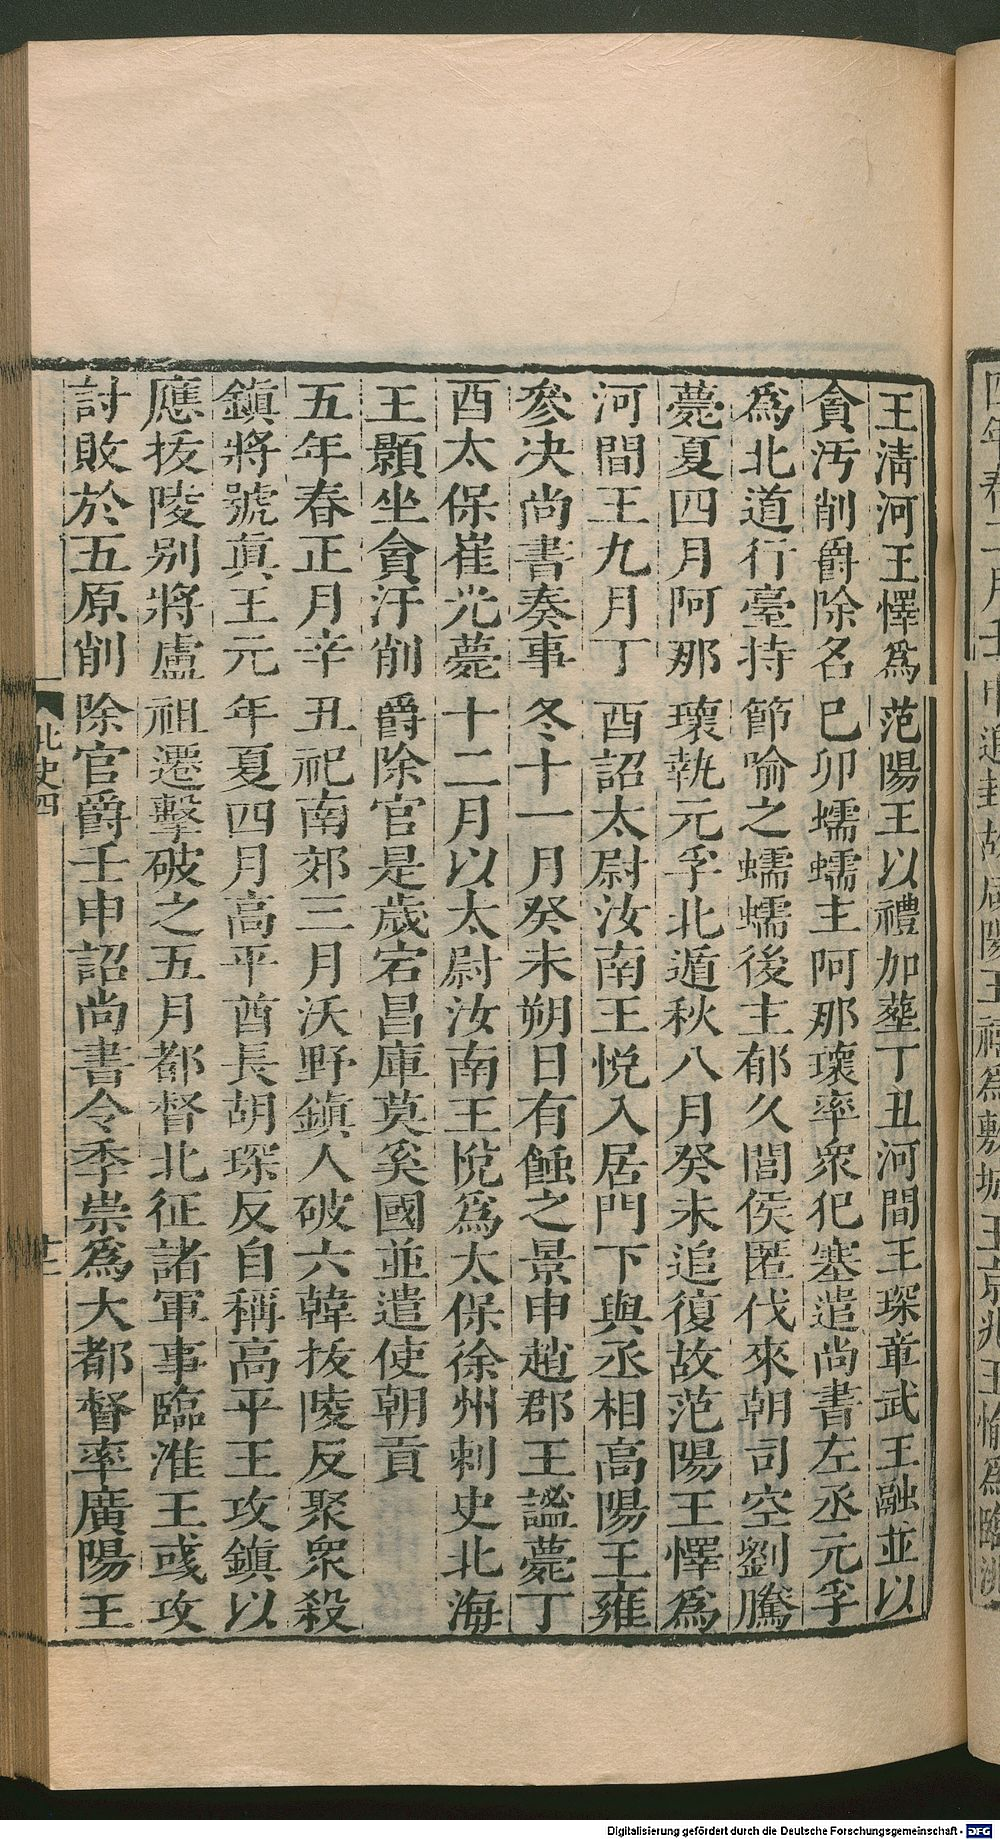 王淸河王懌爲范陽王以禮加葬丁丑河間王琛章武王融並以
貪汚削爵除名巳卯蠕蠕主阿那瓌率衆犯塞遣尚書左丞元孚
爲北道行臺持節喻之蠕蠕後主郁久閭侯匿伐來朝司空劉騰
薨夏四月阿那瓌執元孚北遁秋八月癸未追復故范陽王懌爲
河間王九月丁酉詔太尉汝南王悅入居門下與丞相高陽王雍
參决尚書奏事冬十一月癸未朔日有蝕之景申趙郡王謐薨丁
酉太保崔光薨十二月以太尉汝南王悅爲太保徐州刺史北海
王顥坐貪汙削爵除官是歲宕昌庫莫奚國並遣使朝貢
五年春正月辛丑祀南郊三月沃野鎭人破六韓抜陵反聚衆殺
鎭將號眞王元年夏四月高平酋長胡琛反自稱高平王攻鎭以
應抜陵别將盧祖遷擊破之五月都督北征諸軍事臨淮王彧攻
討敗於五原削除官爵壬申詔尚書令李崇爲大都督率廣陽王
北史四
十二
Digitalisierung gefördert durch die Deutsche Forschungsgemeinschaft - DFG